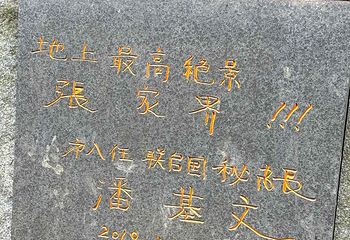 地上 最高 绝景
張家界 !!!
第八任 联合国 秘書長
潘基文